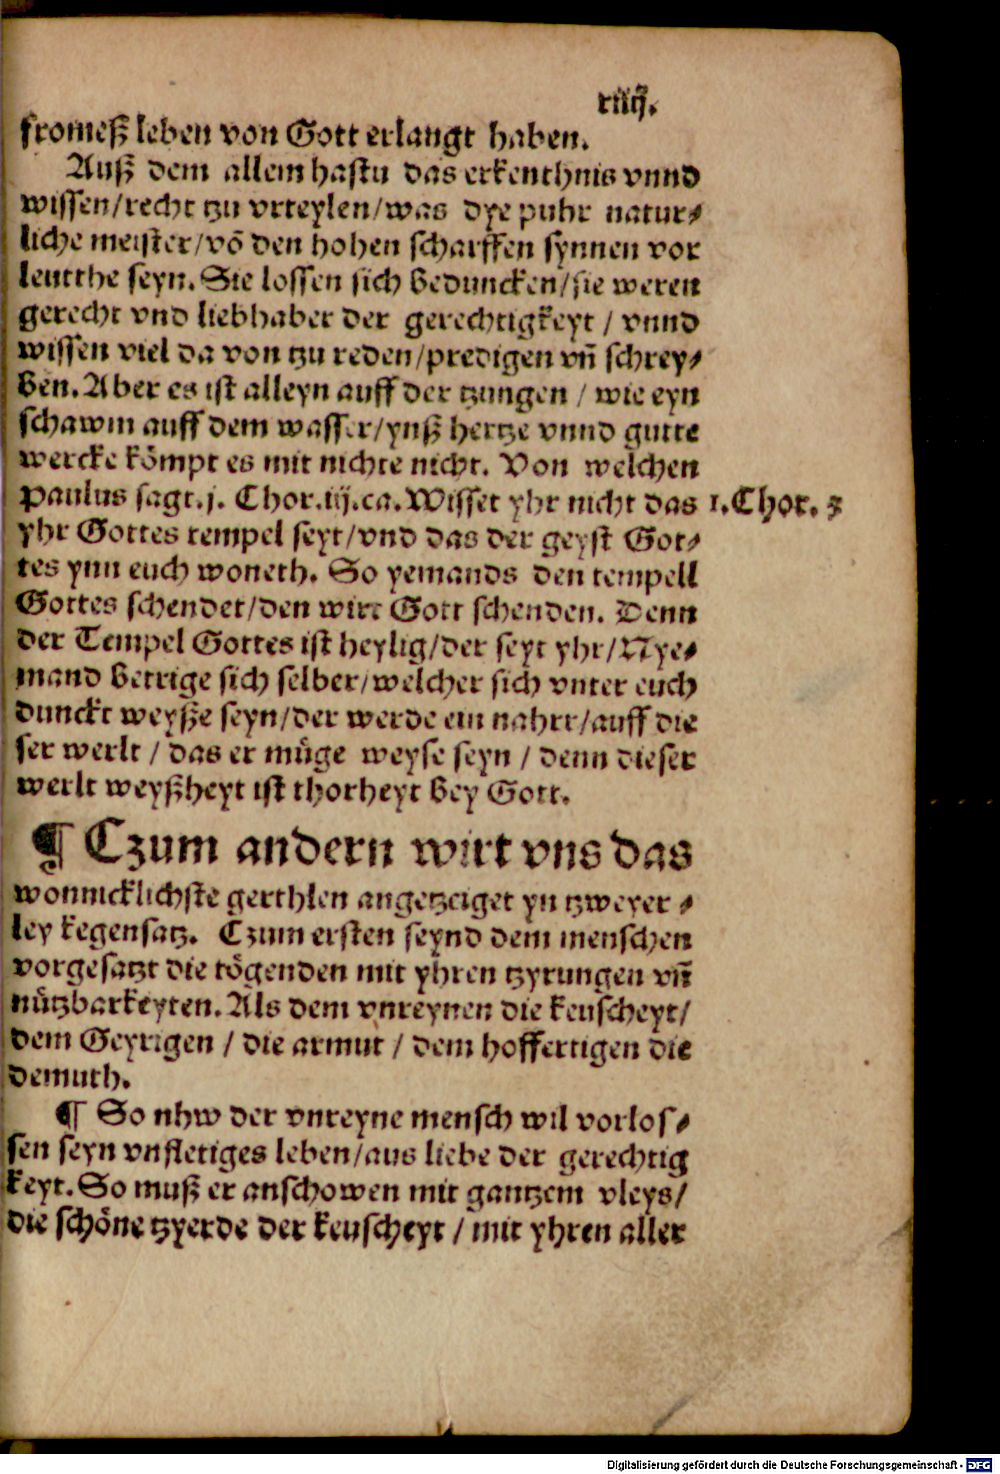 xiiij.
fromeß leben von Gott erlangt haben.
Auß dem allein hastu das erkenthnis vnnd
wissen/recht tzu vrteylen/was dye puhr natur⸗
liche meister/võ den hohen scharffen synnen vor
leutthe seyn. Sie lossen sich beduncken/sie weren
gerecht vnd liebhaber der gerechtigkeyt / vnnd
wissen viel da von tzu reden/predigen vñ schrey⸗
ben. Aber es ist alleyn auff der tzungen / wie eyn
schawm auff dem wasser/ynß hertze vnnd gutte
wercke kömpt es mit nichte nicht. Von welchen
Paulus sagt.j. Chor.iij.ca. Wisset yhr nicht das
1. Chor. 3
yhr Gottes tempel seyt/vnd das der geyst Got⸗
tes ynn euch woneth. So yemands den tempell
Gottes schendet/den wirt Gott schenden. Denn
der Tempel Gottes ist heylig/der seyt yhr/Nye⸗
mand betrige sich selber/welcher sich vnter euch
dunckt weyße seyn/der werde ein nahrr/auff die
ser werlt / das er müge weyse seyn / denn dieser
werlt weyßheyt ist thorheyt bey Gott.
¶ Czum andern wirt vns das
wonnicklichste gerthlen angetzeiget yn tzweyer⸗
ley kegensatz. Czum ersten seynd dem menschen
vorgesatzt die tögenden mit yhren tzyrungen vñ
nützbarkeyten. Als dem vnreynen die keuscheyt/
dem Geyrigen / die armut / dem hoffertigen die
demuth.
¶ So nhw der vnreyne mensch wil vorlos⸗
sen seyn vnfletiges leben/aus liebe der gerechtig
keyt. So muß er anschowen mit gantzem vleys/
die schöne tzyerde der keuscheyt / mit yhren aller
Digitalisierung gefördert durch die Deutsche Forschungsgemeinschaft - DFG